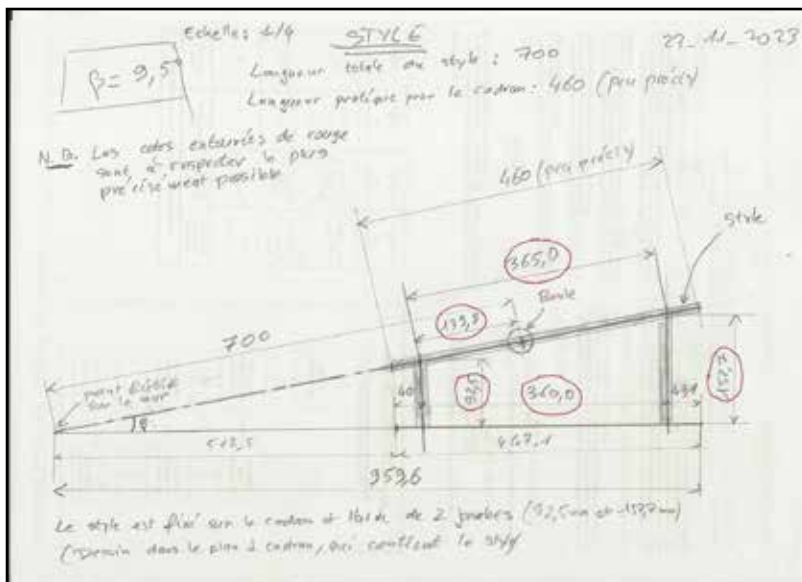 Echelle: 1/4
STYLE
22_11_2023
β = 9,5°
Longueur totale du style : 700
Longueur pratique pour le cadran : 460 (peu précis)
N.B. Les cotes entourées de rouge
sont à respecter le plus
précisément possible
460 (peu précis)
style
365,0
Boule
139,5
700
point fictif
sur le mur
40
360,0
β
467,1
959,6
Le style est fixé sur le cadran à l'aide de 2 jambes
dans le plan cadran, qui contient le style